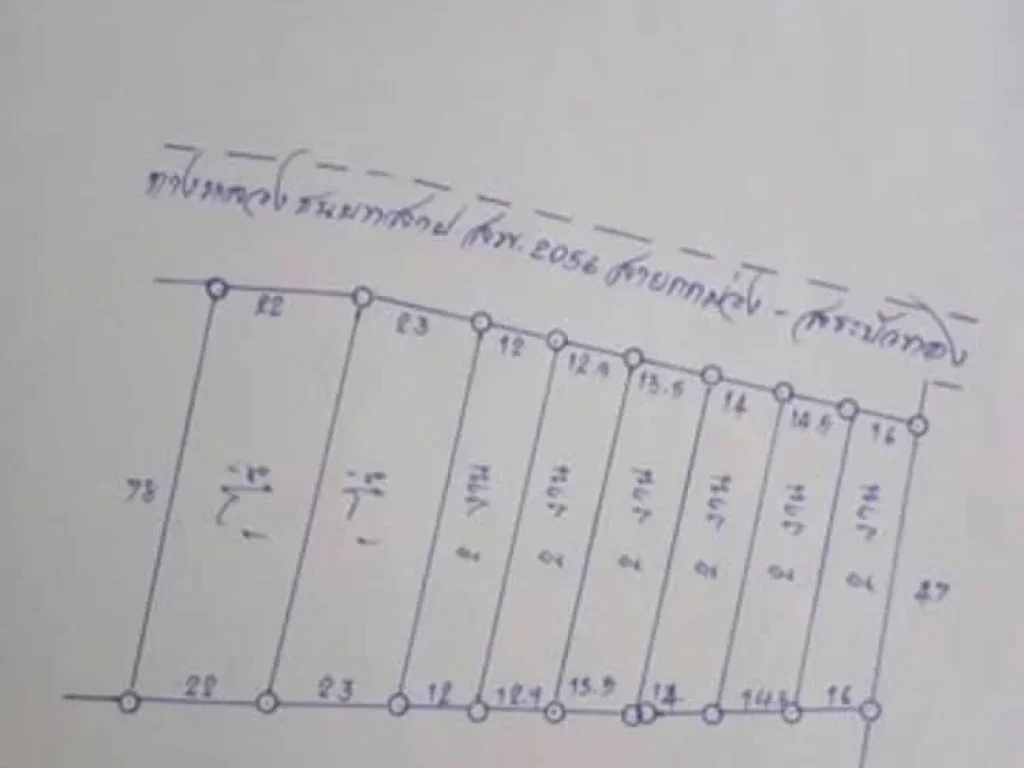 ทางหลวงชนบทสาย สพ. 2056 สายกกม่วง - สระบัวทอง
22 23 12 12.9 13.5 14 14.5 16
78 1 ไร่ 1 ไร่ 2 งาน 2 งาน 2 งาน 2 งาน 2 งาน 2 งาน
22 23 12 12.9 13.5 14 14.5 16